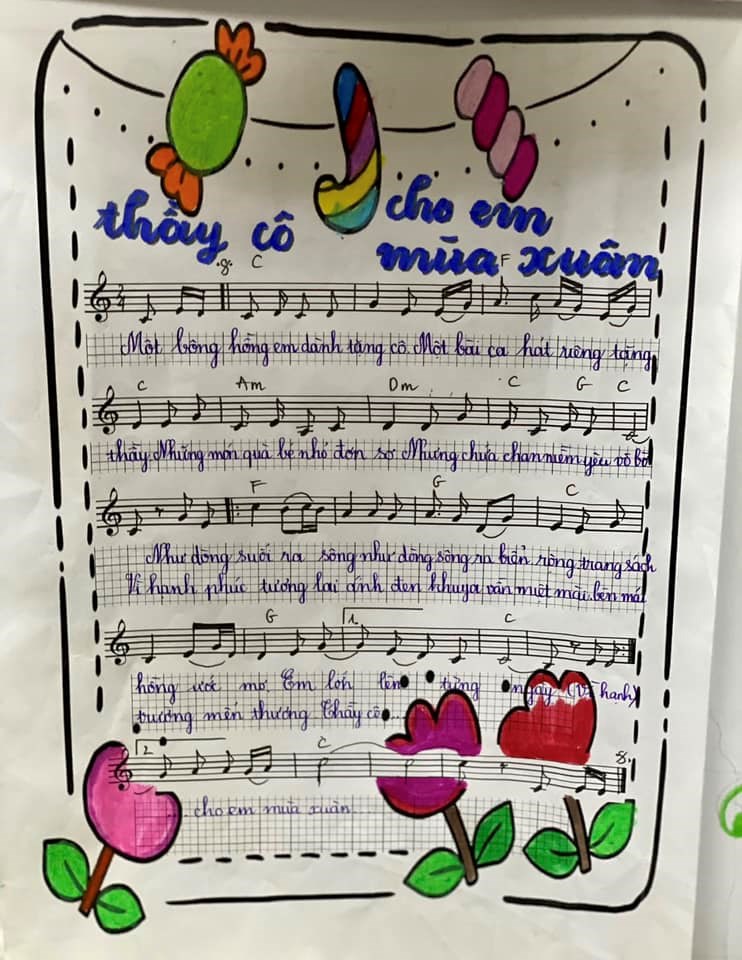 thầy cô cho em
mùa xuân
C F
Một bông hồng em dành tặng cô. Một bài ca hát riêng tặng
C Am Dm C G C
thầy Những món quà bé nhỏ đơn sơ Nhưng chứa chan niềm yêu vô bờ
F G C
Như dòng suối ra sông như dòng sông ra biển rộng trang sách
Vì hạnh phúc tương lai ánh đèn khuya vẫn miệt mài. bên mái
G 1. C
hồng ước mơ. Em lớn lên từng ngày (Vì hạnh)
trường mến thương Thầy cô...
2. C
... cho em mùa xuân...